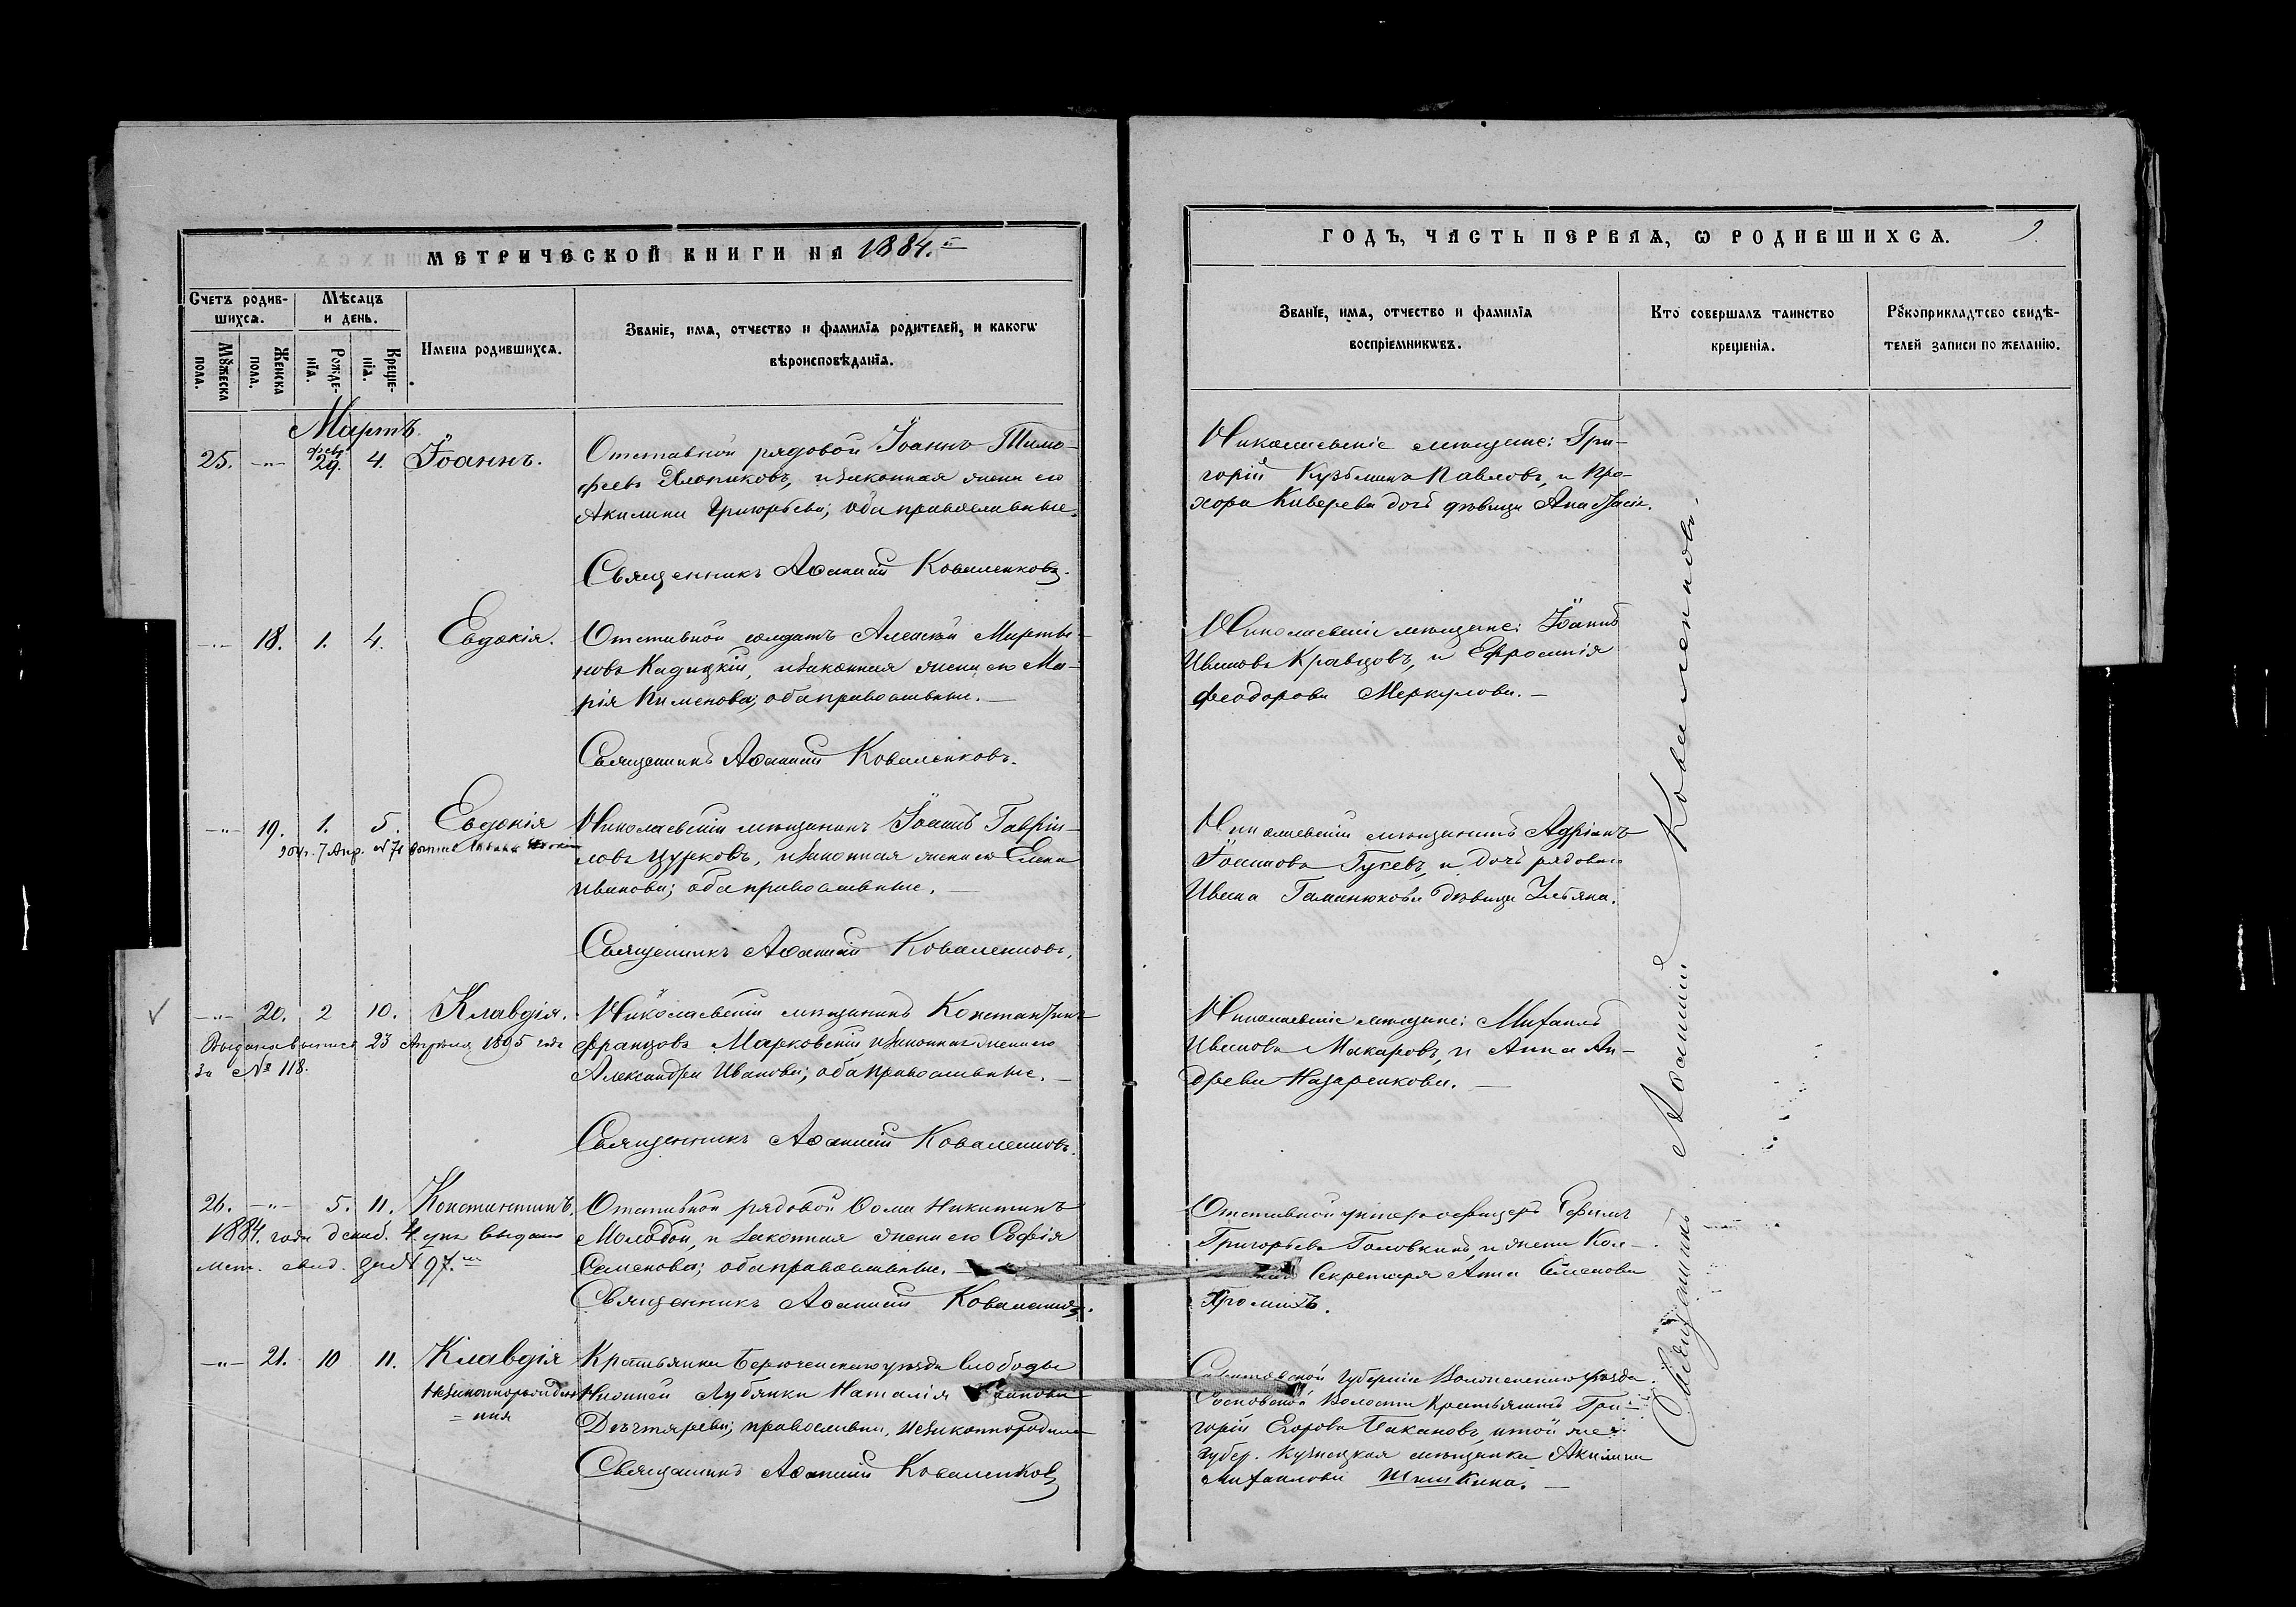 МЕТРИЧЕСКОЙ КНИГИ НА 1884.й
Счетъ родив-
шихсѧ.
Мѣсѧцъ
и день.
Мꙋжеска
пола.
Женска
пола.
Рожде-
нїѧ.
Креще-
нїѧ.
Имена родившихсѧ.
Званїе, имѧ, отчество и фамилїѧ родителей, и какогѡ
вѣроисповѣданїѧ.
Мартъ.
25. -"- Февр. 29. 4. Іоаннъ.
Отставной рядовой Іоаннъ Тимо-
феевъ Хлопиковъ, и законная жена его
Акилина Григорьева; оба православные.
Священникъ Аѳанасій Коваленковъ.
-"- 18. 1. 4. Евдокія.
Отставной солдатъ Алексѣй Марты-
новъ Кадицкій, и законная жена его Ма-
рія Пименова; оба православные.
Священникъ Аѳанасій Коваленковъ.
-"- 19. 1. 5. Евдокія
904 г. 7 Апр. № 71
Николаевскій мѣщанинъ Іоаннъ Гаврі-
ловъ Цурковъ, и законная жена его Елена
Иванова; оба православные.
Священникъ Аѳанасій Коваленковъ.
-"- 20. 2 10. Клавдія.
Выдана выпись 23 Апрѣля 1895 года
за № 118.
Николаевскій мѣщанинъ Константинъ
Францовъ Марковскій, и законная жена его
Александра Иванова; оба православные.
Священникъ Аѳанасій Коваленковъ.
26. -"- 5. 11. Константинъ.
1884. года декаб. 4 дня выдано
мет. свид. за № 97.
Отставной рядовой Ѳома Никитинъ
Молодой, и законная жена его Софія
Семенова; оба православные.
Священникъ Аѳанасій Коваленковъ.
-"- 21. 10 11. Клавдія
Незаконнорожден
=ная
Крестьянка Бирюченскаго уѣзда Слободы
Нижней Лубянки Наталія
Дехтярева; православная, незаконнородила
Священникъ Аѳанасій Коваленковъ
ГОДЪ, ЧАСТЬ ПЕРВАѦ, Ѡ РОДИВШИХСѦ.
9.
Званїе, имѧ, отчество и фамилїѧ
воспрїемникѡвъ.
Кто совершалъ таинство
крещенїѧ.
Рꙋкоприкладтсво свидѣ-
телей записи по желанїю.
Николаевскіе мѣщане: Гри-
горій Кузьминъ Павловъ, и Про-
хора Киверева дочь дѣвица Анастасія.
Николаевскіе мѣщане: Іоаннъ
Ивановъ Кравцовъ, и Ефросинія
Феодорова Меркулова.
Николаевскій мѣщанинъ Адріанъ
Іоанновъ Гукевъ, и дочь рядоваго
Ивана Гаманюкова дѣвица Ульяна.
Николаевскіе мѣщане: Михаилъ
Ивановъ Макаровъ, и Анна Ан-
дреева Назаренкова.
Отставной унтеръ офицеръ Ефимъ
Григорьевъ Головкинъ, и жена Кол-
Секретаря Анна Семенова
Хромихъ.
Саратовской губерніи
Сосновской волости Крестьянинъ Гри-
горій Егоровъ Пакановъ, и той же
губер. Кузнецкая мѣщанка Акилина
Михаилова Шишкина.
Священникъ Аѳанасій Коваленковъ